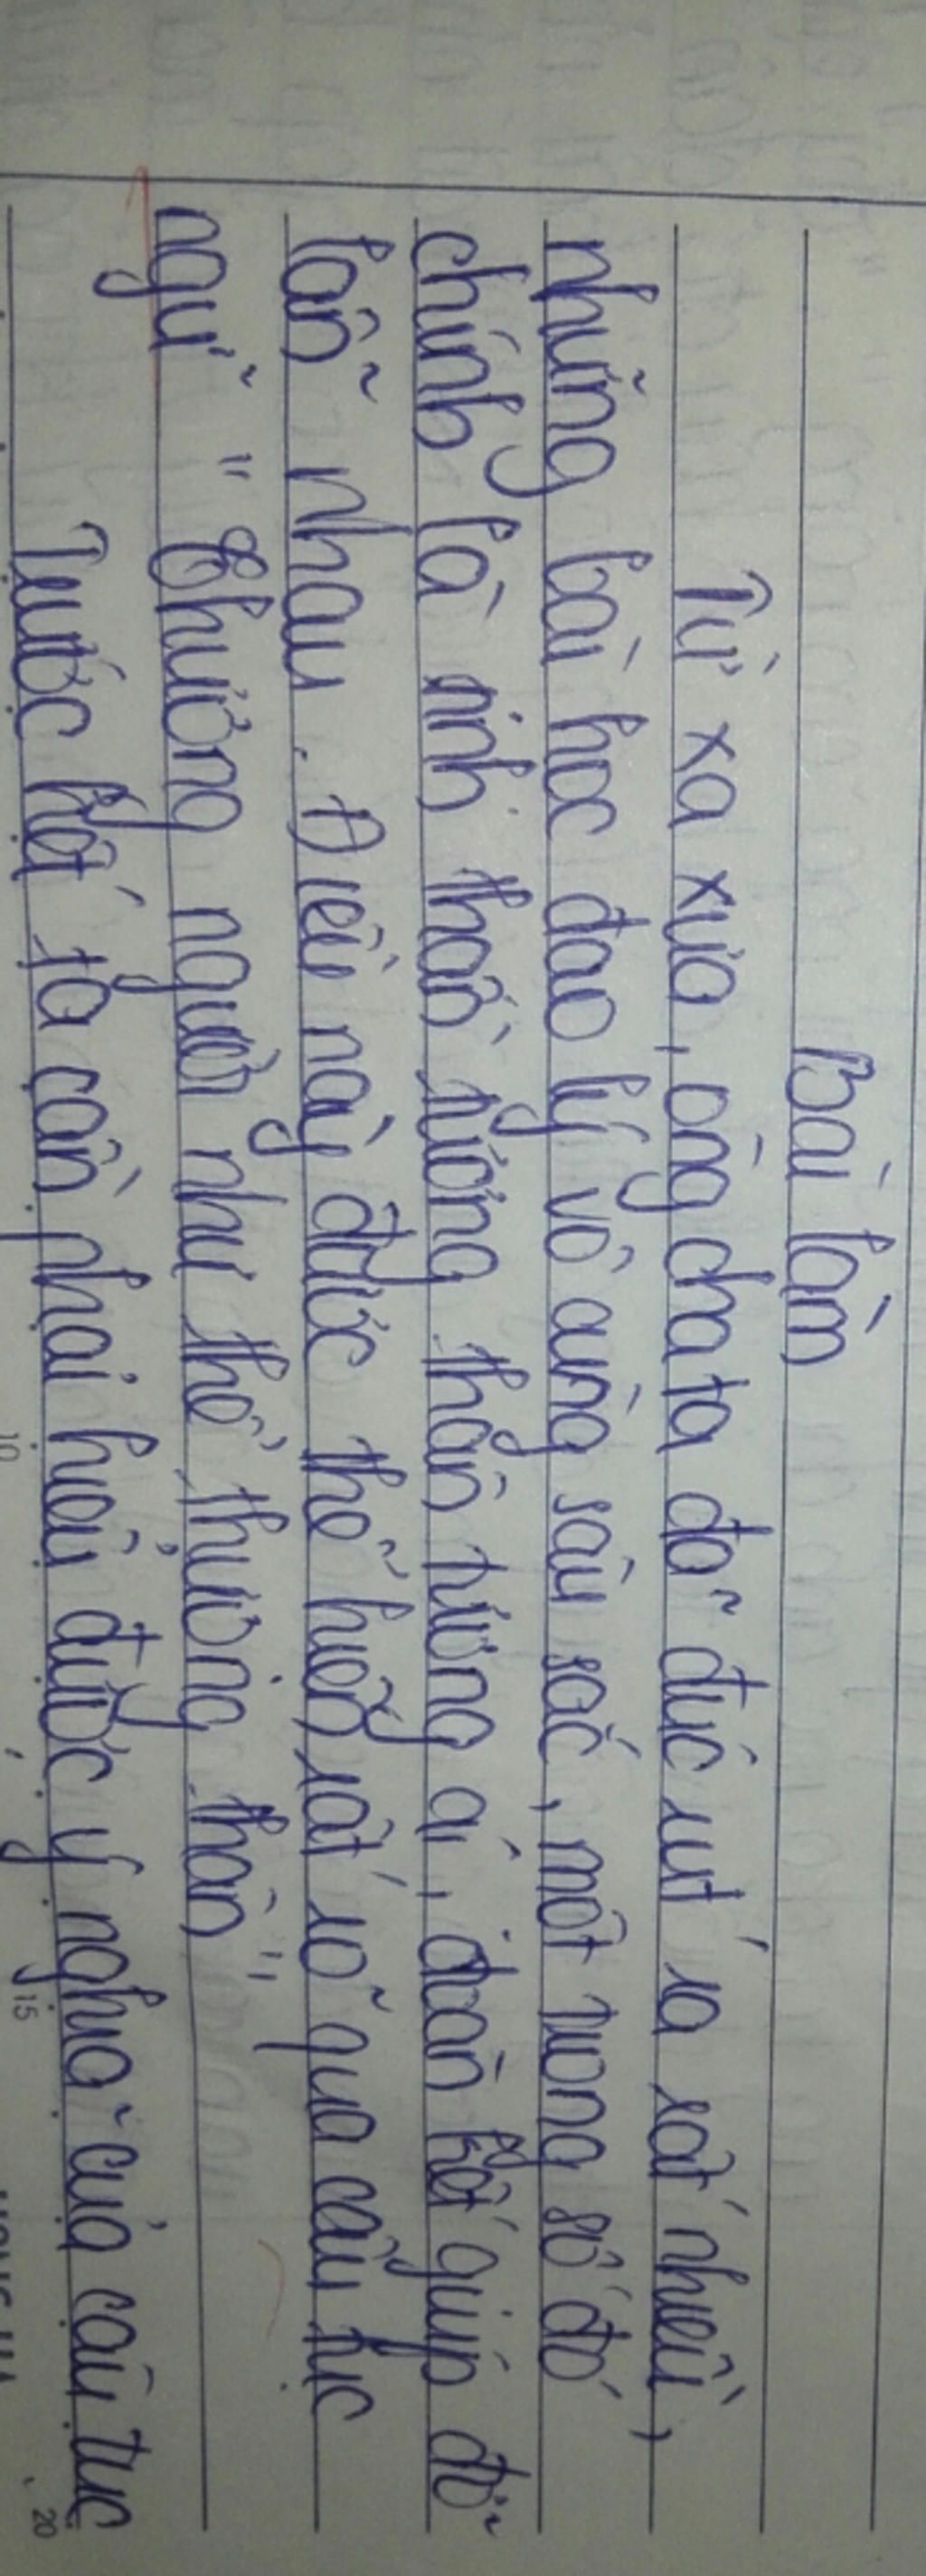 Bài làm
Từ xa xưa, ông cha ta đã đúc rút ra rất nhiều,
những bài học đạo lý vô cùng sâu sắc, một trong số đó
chính là tinh thần tương thân tương ái, đoàn kết giúp đỡ
lẫn nhau. Điều này được thể hiện rất rõ qua câu tục
ngữ "Thương người như thể thương thân",
Trước hết ta cần phải hiểu được ý nghĩa của câu tục
10
15
20